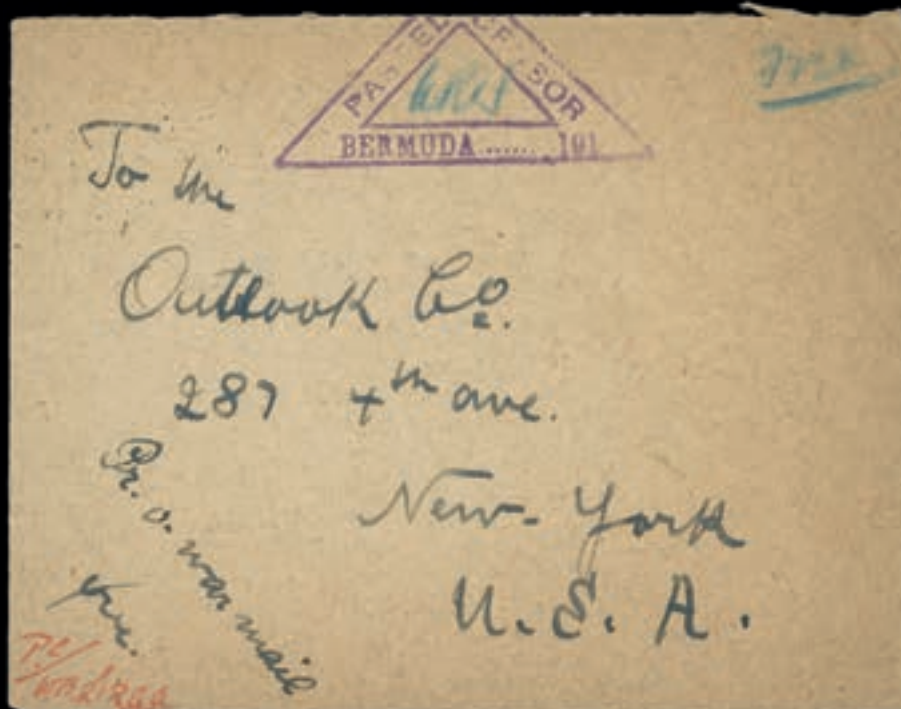 PASSED CENSOR
BERMUDA ...... 191
To the
Outlook Co.
287 4th ave.
New-York
U.S.A.
Pr. o. war mail
free.